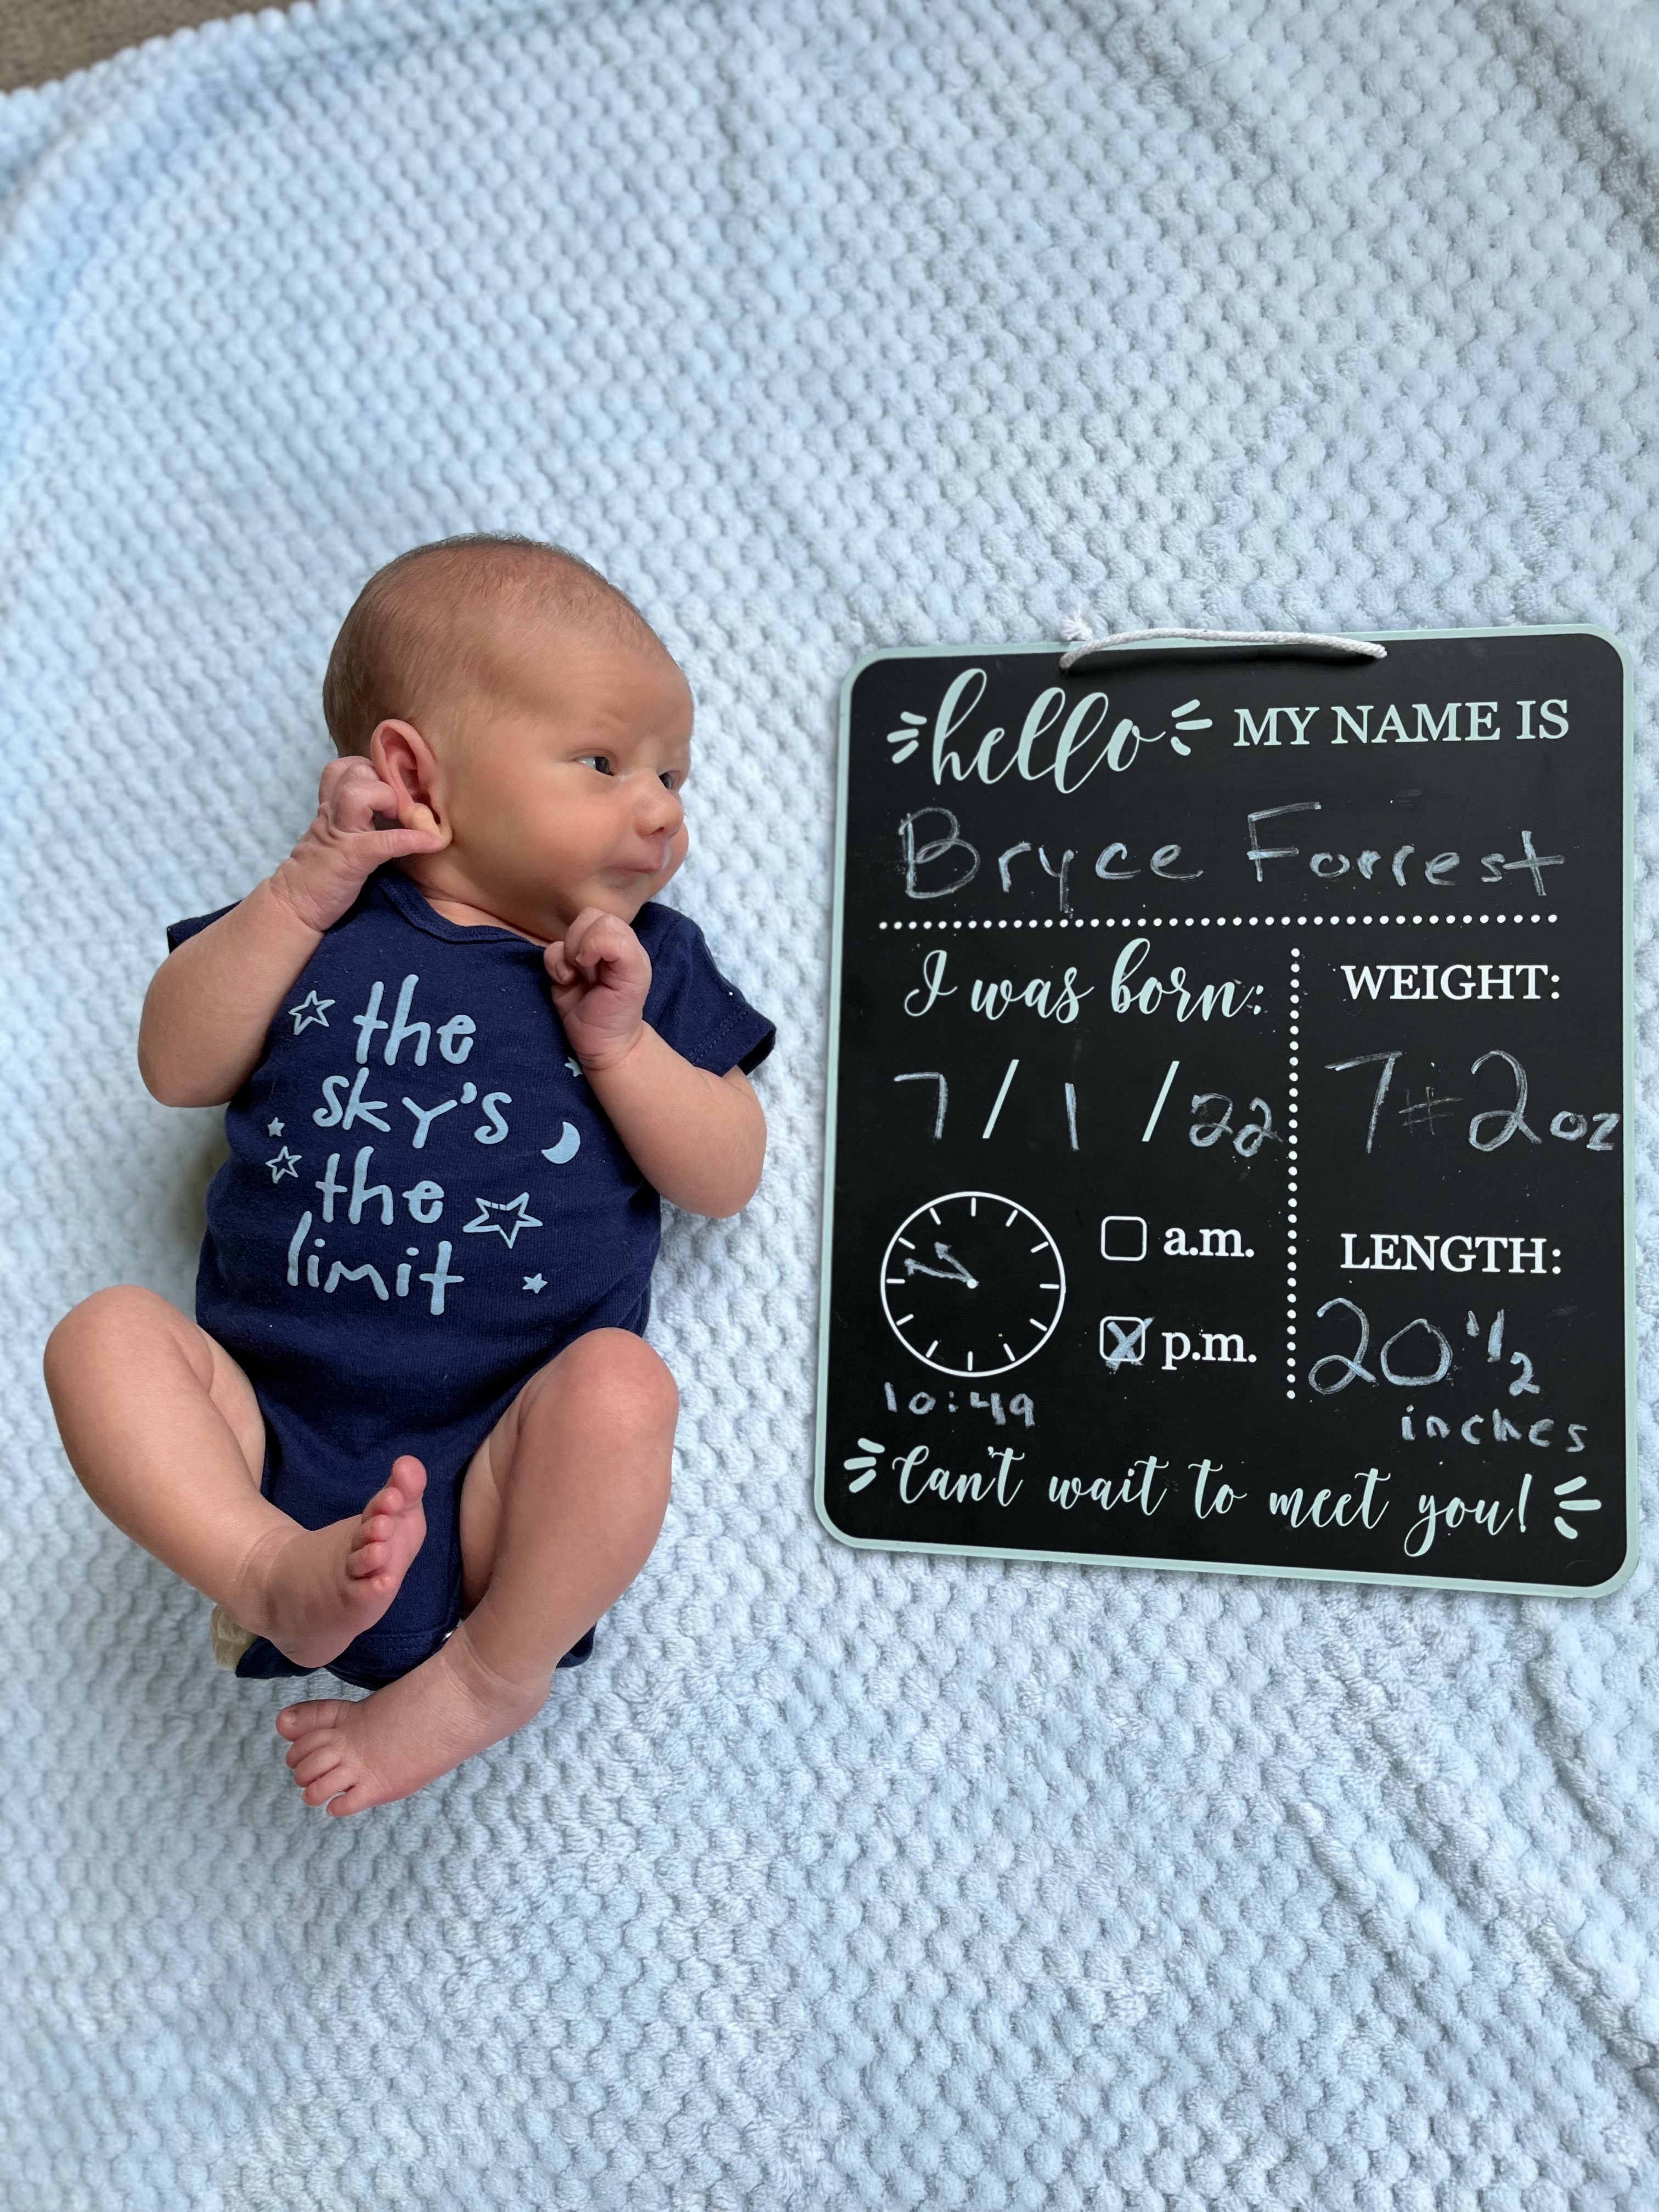 the
sky's
the
limit
hello MY NAME IS
Bryce Forrest
I was born:
7/1/22
a.m.
p.m.
10:49
WEIGHT:
7# 2oz
LENGTH:
20 1/2
inches
Can't wait to meet you!